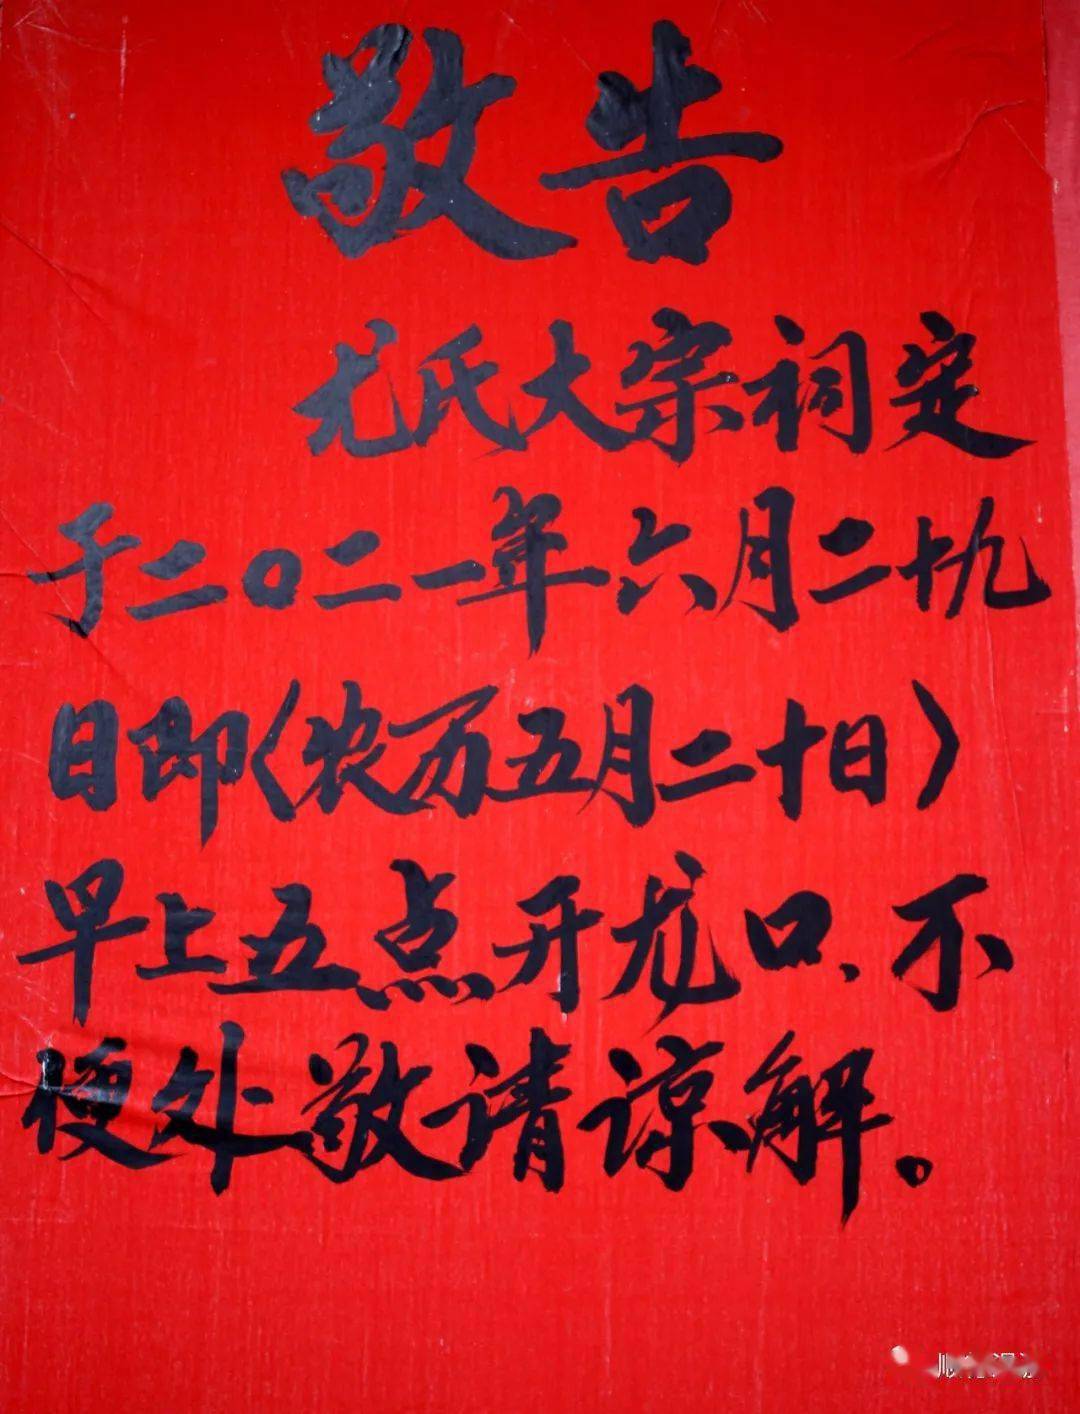 敬告
尤氏大宗祠定
于二〇二一年六月二十九
日即(农历五月二十日)
早上五点开龙口、不
便处敬请谅解。